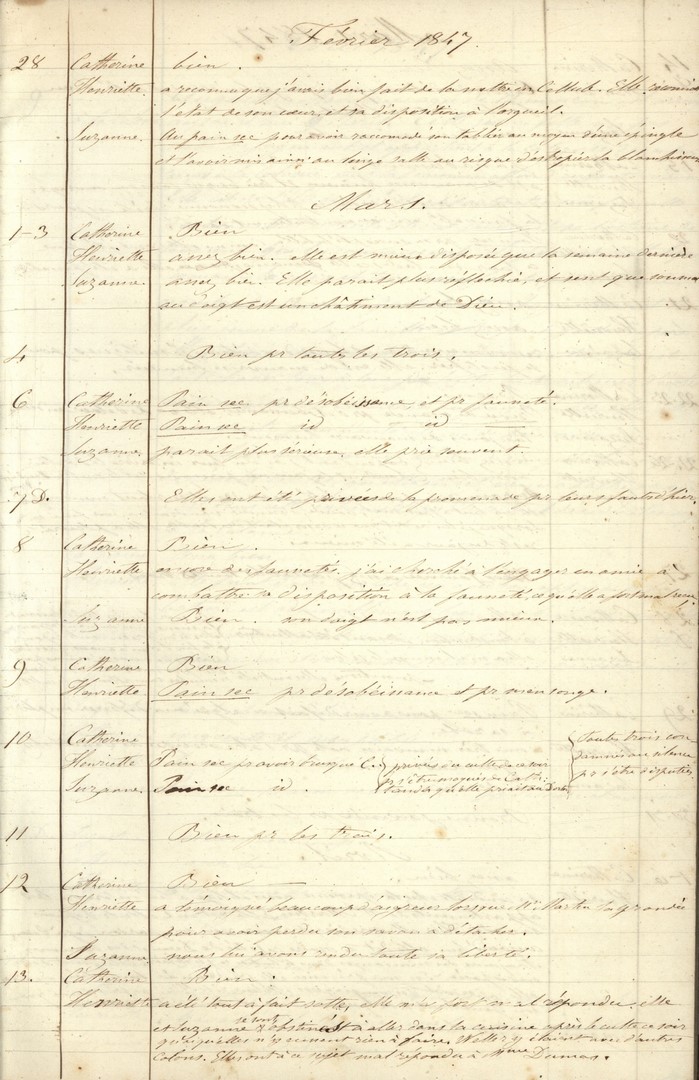 Février 1847
28 Catherine bien.
Henriette a reconnu que j'avais bien fait de la mettre en Cellule. Elle
l'état de son cœur, et sa disposition à l'orgueil.
Suzanne. Au pain sec pour avoir raccomodé son tablier au moyen d'une épingle
et l'avoir mis ainsi au linge salle au risque d'estropier la blanchisseuse
Mars.
1-3 Catherine Bien
Henriette assez bien. elle est mieux disposée que la semaine dernière
Suzanne assez bien. Elle parait plus réflechie, et sent que son mal
au doigt est un châtiment de Dieu.
4 Bien pr toutes les trois.
6 Catherine Pain sec pr désobéissance et pr fausseté.
Henriette Pain sec id id —
Suzanne parait plus sérieuse, elle prie souvent.
7 D. Elles ont été privées de la promenade pr leurs fautes d'hier.
8 Catherine Bien.
Henriette encore des faussetés, j'ai cherché à l'engager en amie à
combattre sa disposition à la fausseté, ce qu'elle a fort mal reçu,
Suzanne Bien. son doigt n'est pas mieux.
9 Catherine Bien
Henriette. Pain sec pr désobéissance et pr mensonge.
10 Catherine
Henriette Pain sec pr avoir C. privées du culte du soir
pr s'être moquées de Cath.
tandis qu'elle priait
Suzanne. Pain sec id.
Toutes trois con
damnées au silence
pr s'être disputées
11 Bien pr les trois.
12 Catherine Bien —
Henriette a témoigné beaucoup d'aigreur lorsque la grondée
pour avoir perdu son savon à détacher.
Suzanne nous lui avons rendu toute sa liberté.
13. Catherine Bien.
Henriette a été tout à fait sotte, elle m'a fort mal répondu, elle
et Suzanne se sont obstinées à aller dans la cuisine après le culte ce soir
quoiqu'elles n'y eussent rien à faire, y étaient avec d'autres
colons. Elles ont à ce sujet mal répondu à Mme Dumas.